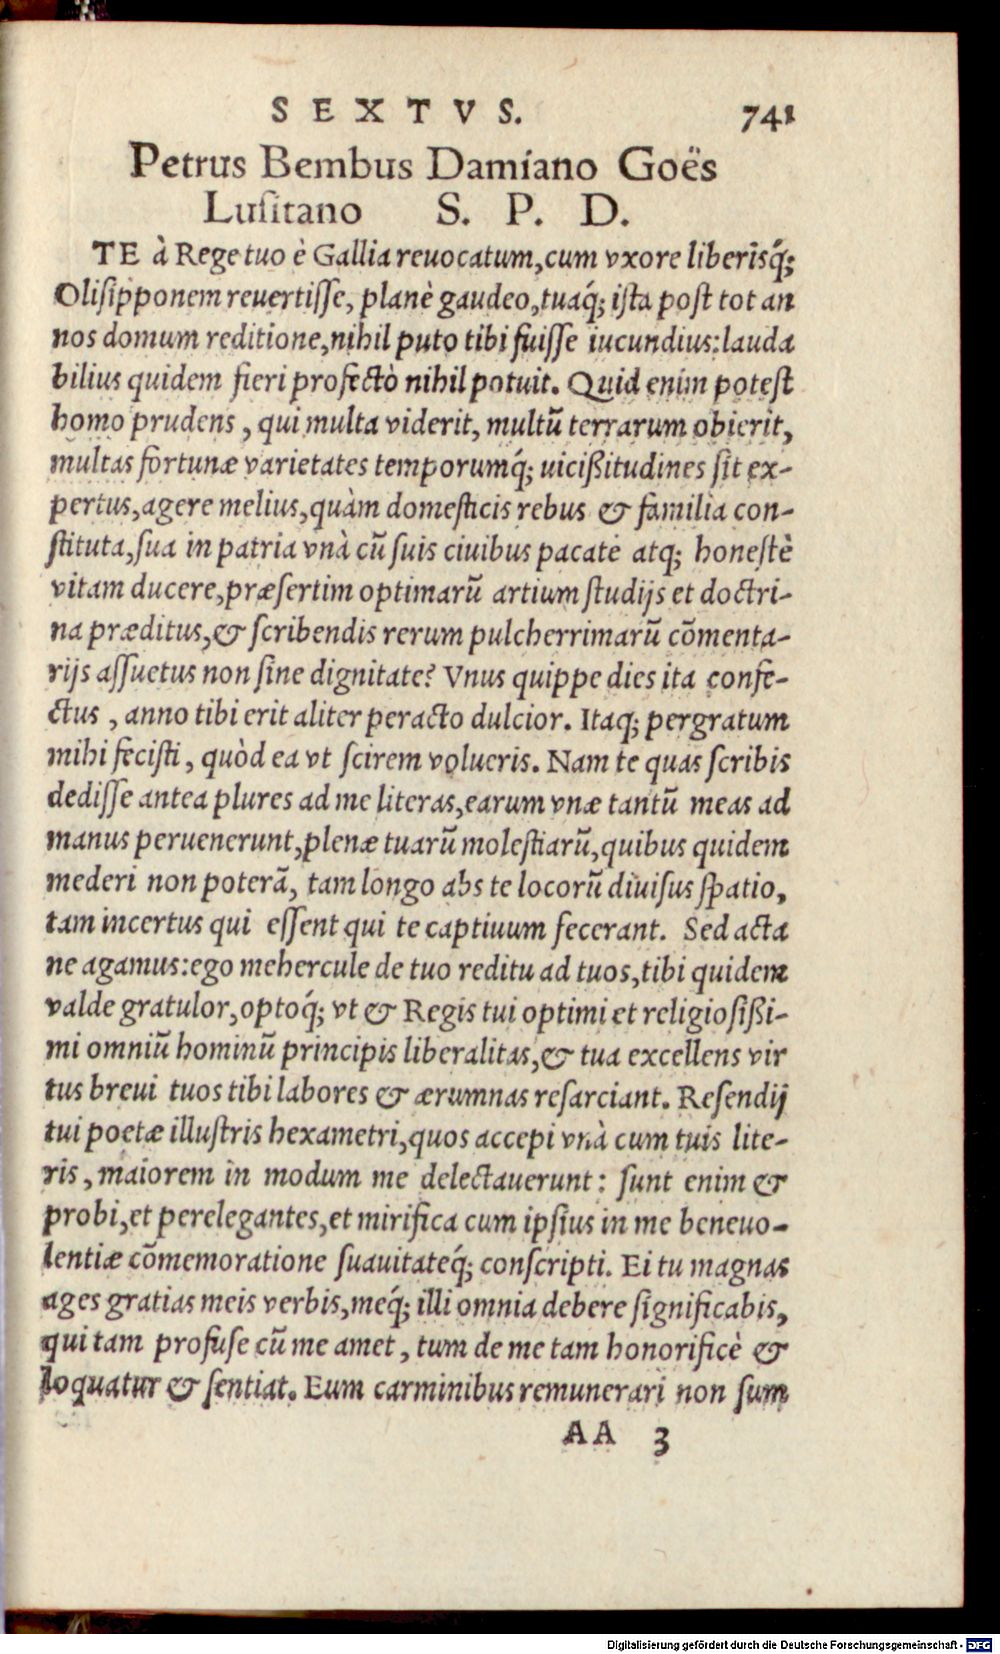 SEXTVS. 741
Petrus Bembus Damiano Goës
Lusitano S. P. D.
TE à Rege tuo è Gallia reuocatum, cum vxore liberisq́;
Olisipponem reuertisse, planè gaudeo, tuaq́; ista post tot an
nos domum reditione, nihil puto tibi fuisse iucundius: lauda
bilius quidem fieri profectò nihil potuit. Quid enim potest
homo prudens, qui multa viderit, multũ terrarum obierit,
multas fortunæ varietates temporumq́; uicißitudines sit ex-
pertus, agere melius, quàm domesticis rebus & familia con-
stituta, sua in patria vnà cũ suis ciuibus pacatè atq; honestè
vitam ducere, præsertim optimarũ artium studijs et doctri-
na præditus, & scribendis rerum pulcherrimarũ cõmenta-
rijs assuetus non sine dignitate? Vnus quippe dies ita confe-
ctus, anno tibi erit aliter peracto dulcior. Itaq; pergratum
mihi fecisti, quòd ea vt scirem volueris. Nam te quas scribis
dedisse antea plures ad me literas, earum vnæ tantũ meas ad
manus peruenerunt, plenæ tuarũ molestiarũ, quibus quidem
mederi non poterã, tam longo abs te locorũ diuisus spatio,
tam incertus qui essent qui te captiuum fecerant. Sed acta
ne agamus: ego mehercule de tuo reditu ad tuos, tibi quidem
valde gratulor, optoq́; vt & Regis tui optimi et religiosißi-
mi omniũ hominũ principis liberalitas, & tua excellens vir
tus breui tuos tibi labores & ærumnas resarciant. Resendij
tui poetæ illustris hexametri, quos accepi vnà cum tuis lite-
ris, maiorem in modum me delectauerunt: sunt enim &
probi, et perelegantes, et mirifica cum ipsius in me beneuo-
lentiæ cõmemoratione suauitateq́; conscripti. Ei tu magnas
ages gratias meis verbis, meq́; illi omnia debere significabis,
qui tam profuse cũ me amet, tum de me tam honorificè &
loquatur & sentiat. Eum carminibus remunerari non sum
AA 3
Digitalisierung gefördert durch die Deutsche Forschungsgemeinschaft - DFG